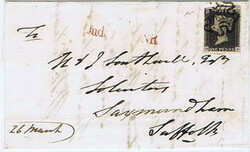 To
ONE PENNY
Southwell, Esqr
Solicitor
Saxmundham
Suffolk
26 March